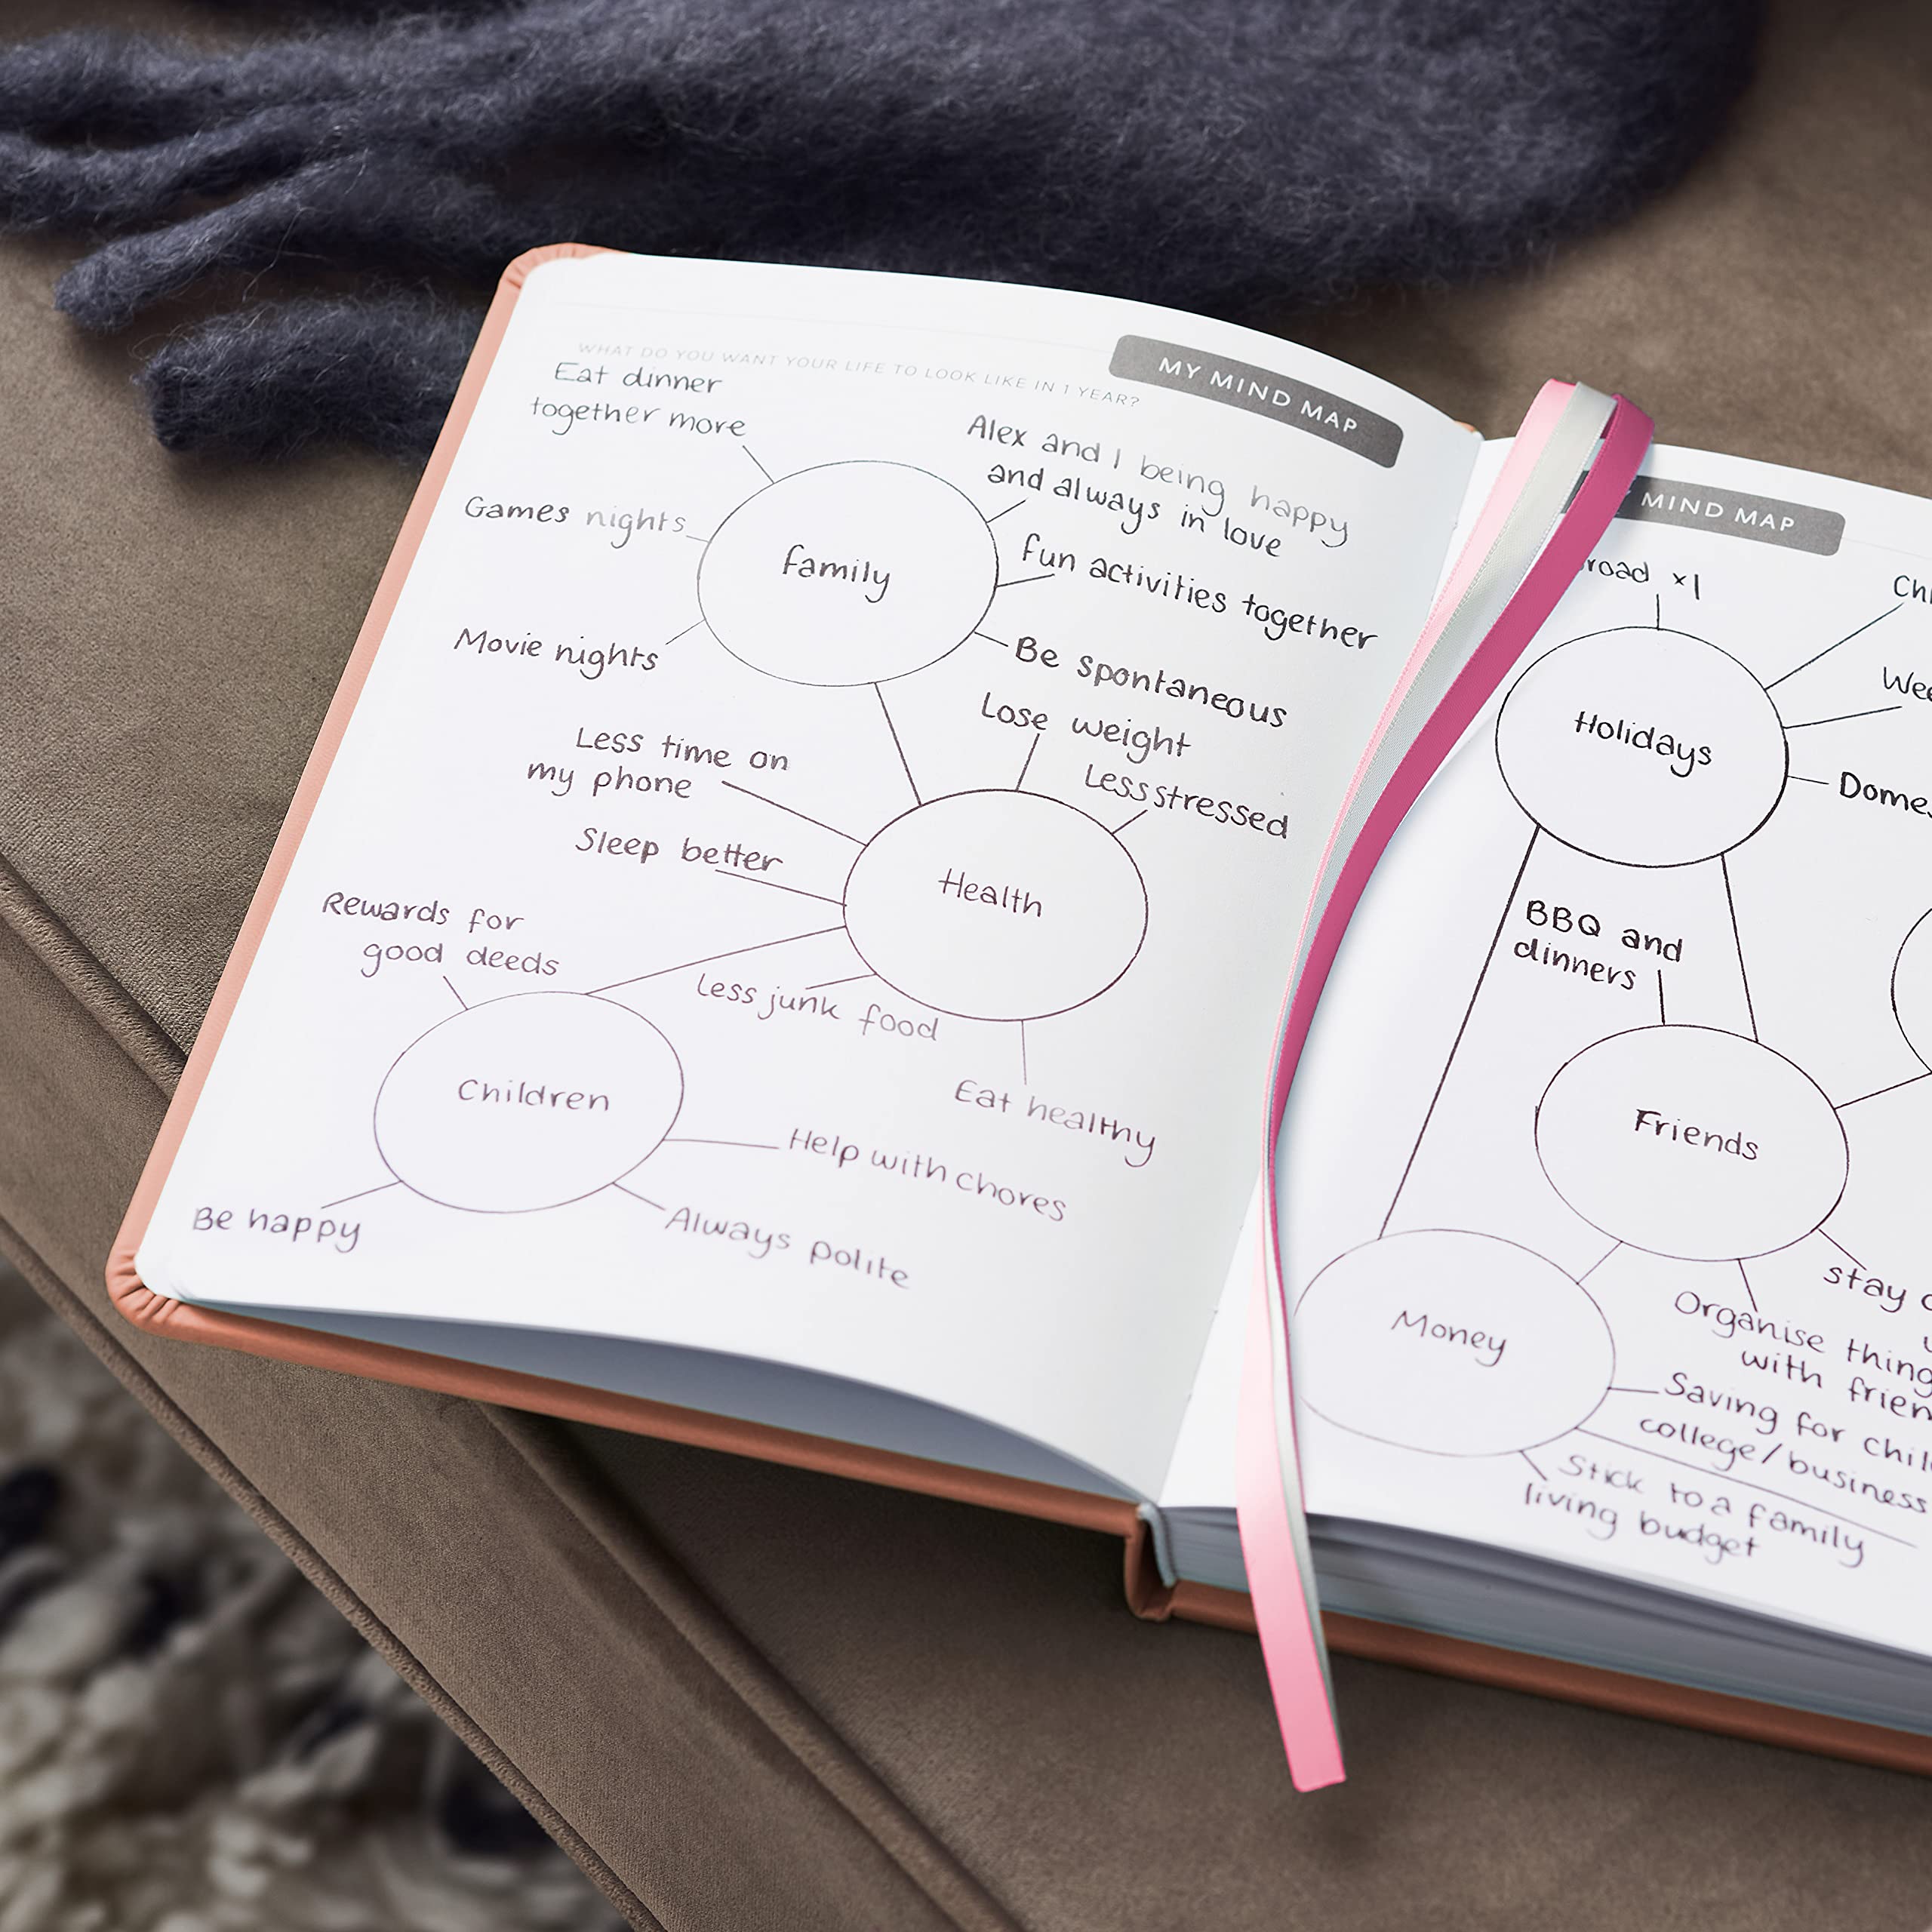 WHAT DO YOU WANT YOUR LIFE TO LOOK LIKE IN 1 YEAR?
MY MIND MAP
Eat dinner
together more
Alex and I being happy
and always in love
Games nights
Family
Fun activities together
Movie nights
Be spontaneous
Less time on
my phone
Lose weight
Less stressed
Sleep better
Health
Rewards for
good deeds
Less junk food
Eat healthy
Children
Help with chores
Be happy
Always polite
MIND MAP
x1
Holidays
BBQ and
dinners
Friends
stay
Organise
with
Money
Saving for
college/business
Stick to a family
living budget